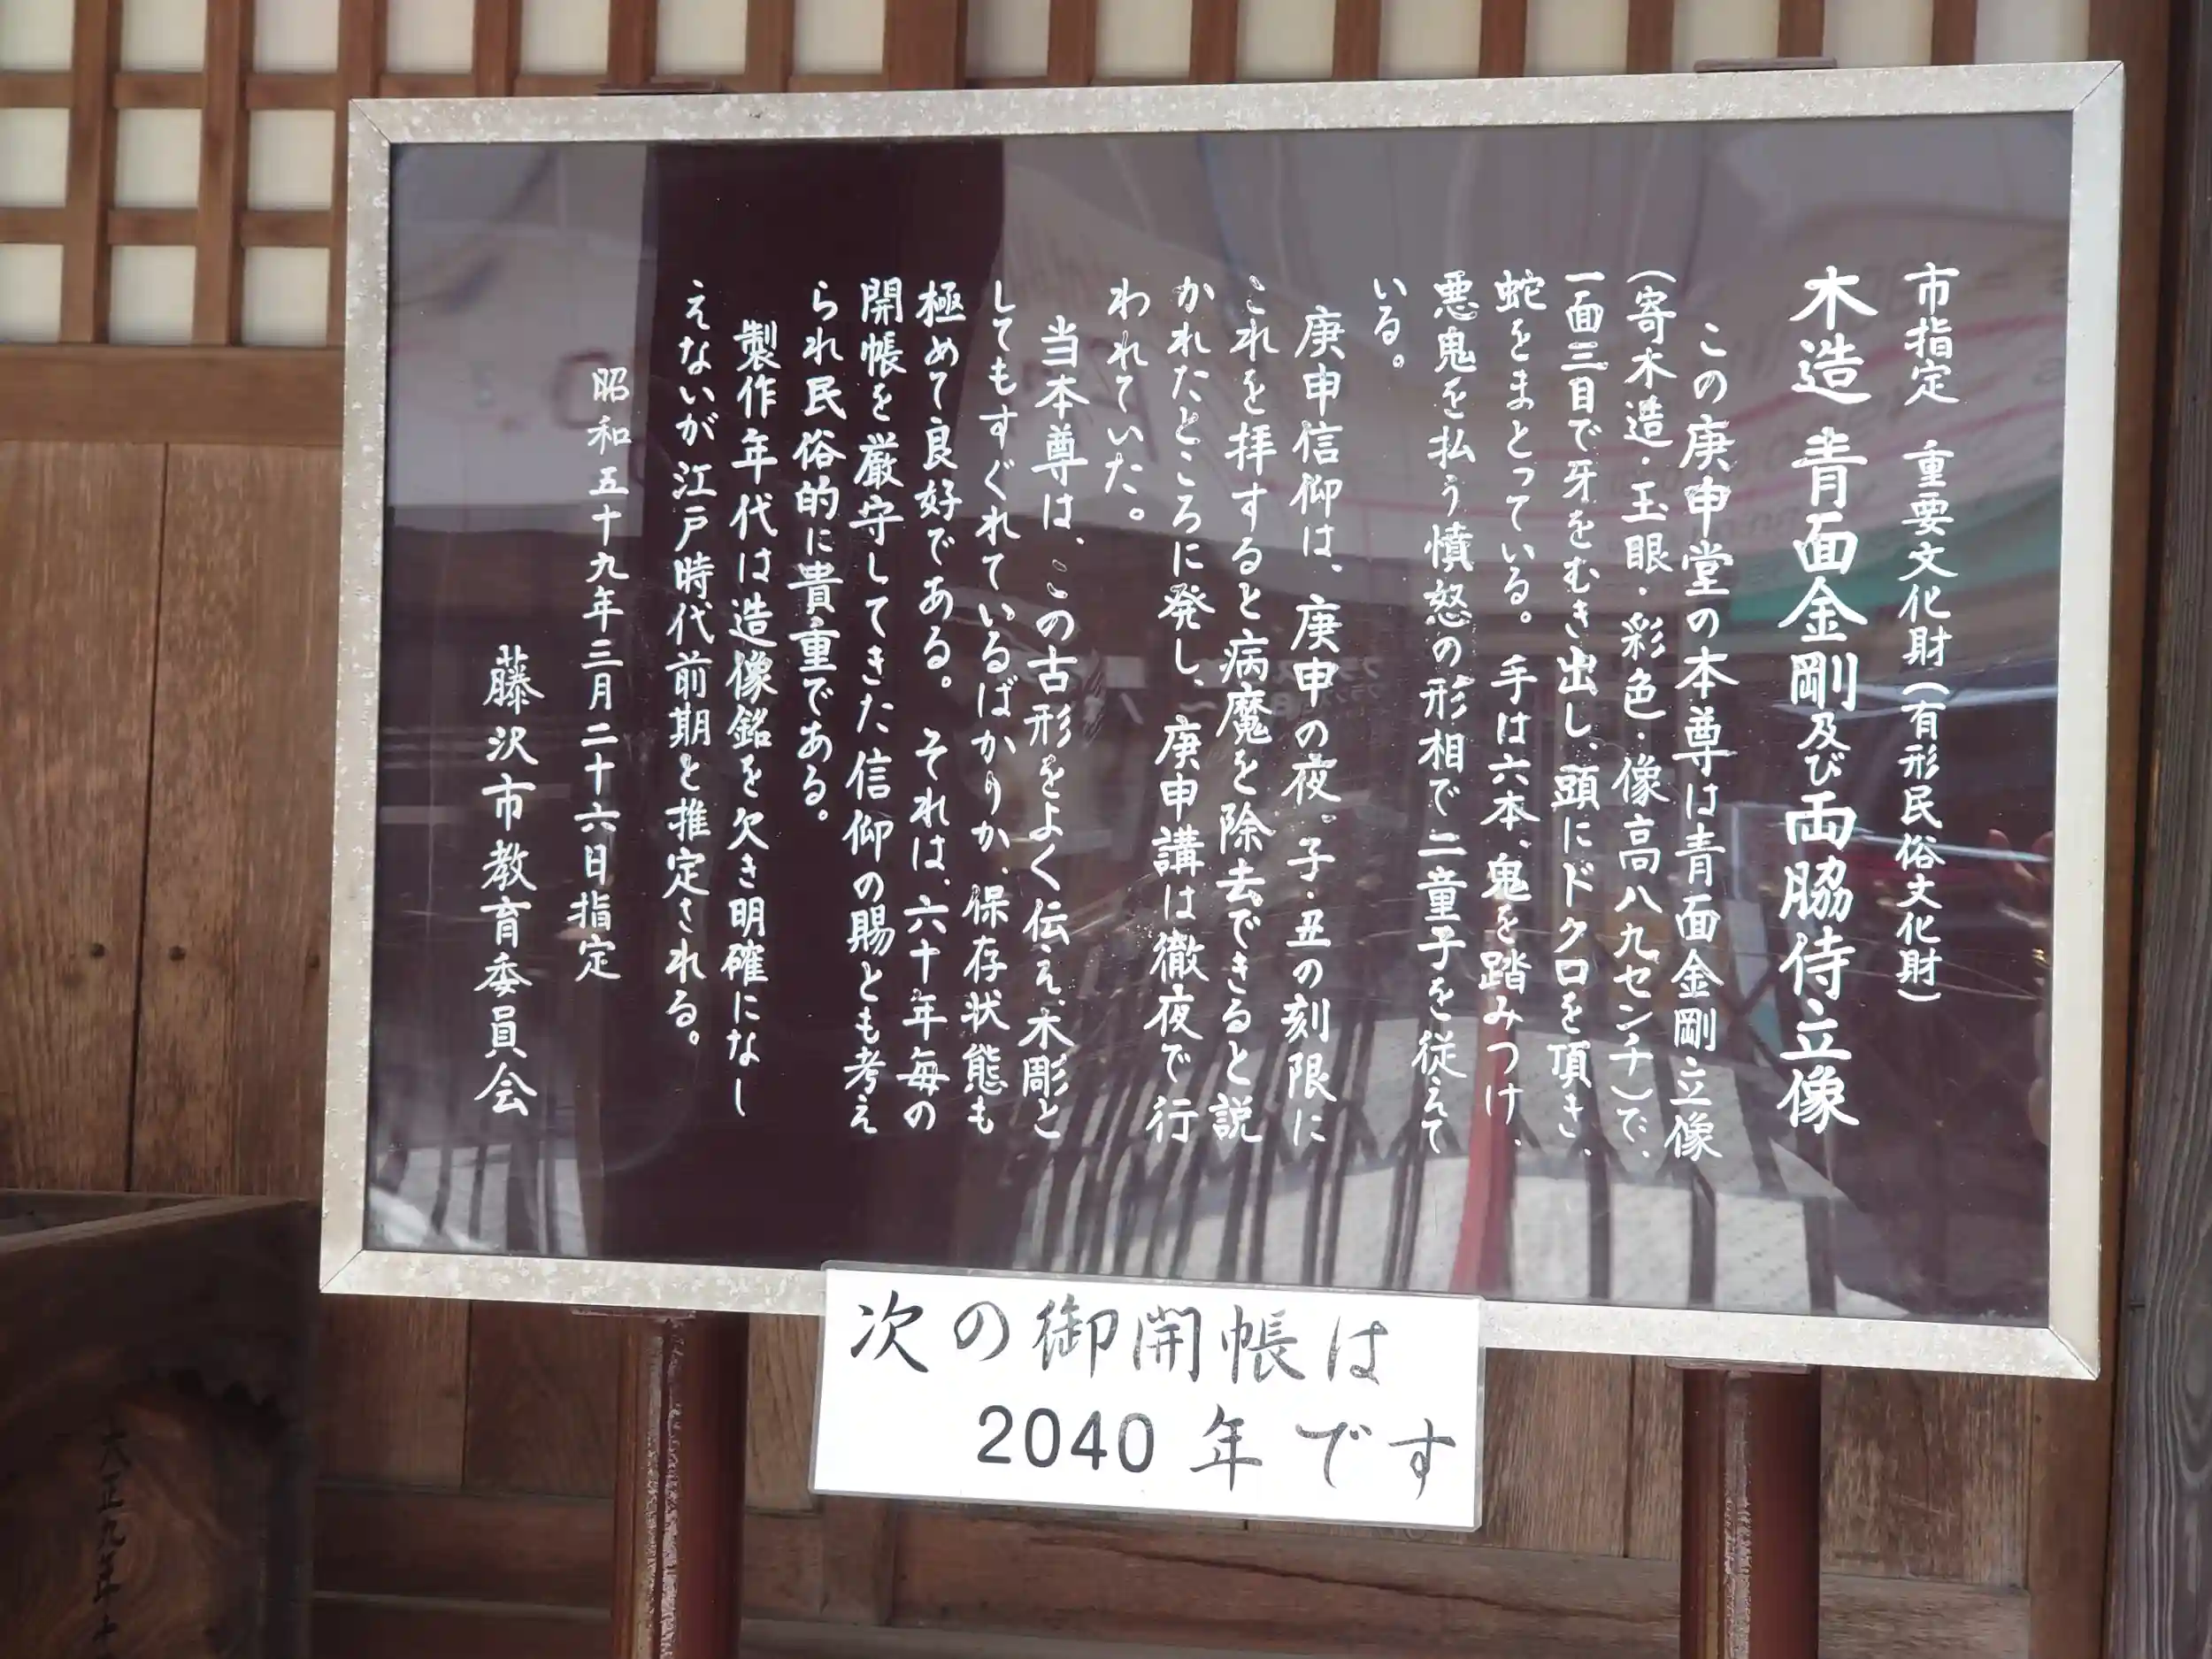 市指定　重要文化財（有形民俗文化財）
木造 青面金剛及び両脇侍立像
この庚申堂の本尊は青面金剛立像
（寄木造・玉眼・彩色・像高八九センチ）で、
一面三目で牙をむき出し、頭にドクロを頂き、
蛇をまとっている。手は六本、鬼を踏みつけ、
悪鬼を払う憤怒の形相で二童子を従えて
いる。
庚申信仰は、庚申の夜、子・丑の刻限に
これを拝すると病魔を除去できると説
かれたところに発し、庚申講は徹夜で行
われていた。
当本尊は、この古形をよく伝え、木彫と
してもすぐれているばかりか、保存状態も
極めて良好である。それは、六十年毎の
開帳を厳守してきた信仰の賜とも考え
られ民俗的に貴重である。
製作年代は造像銘を欠き明確になし
えないが江戸時代前期と推定される。
昭和五十九年三月二十六日指定
藤沢市教育委員会
次の御開帳は
2040年です
大正九年十